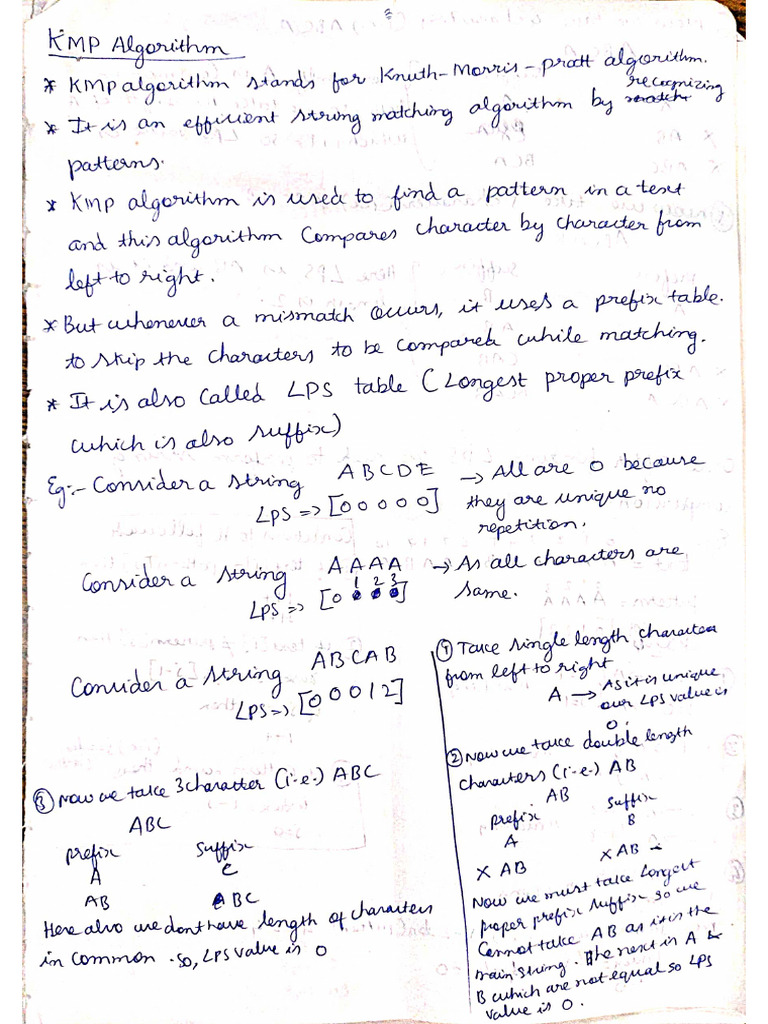 KMP Algorithm
* KMP algorithm stands for Knuth-Morris-pratt algorithm.
* It is an efficient string matching algorithm by recognizing
patterns.
* KMP algorithm is used to find a pattern in a text
and this algorithm Compares character by character from
left to right.
* But whenever a mismatch occurs, it uses a prefix table.
to skip the characters to be compared while matching.
* It is also called LPS table (Longest proper prefix
which is also suffix)
Eg:- Consider a string ABCDE → All are 0 because
LPS => [0 0 0 0 0] they are unique no
repetition.
Consider a string AAAA → As all characters are
LPS => [0 1 2 3] same.
Consider a string ABCAB
LPS => [0 0 0 1 2]
① Take single length character
from left to right
A → As it is unique
our LPS value is
0.
② Now we take double length
characters (i-e-) AB
AB
prefix suffix
A B
x AB x AB
Now we must take Longest
proper prefix suffix so we
Cannot take AB as it is the
main string. The next is A &
B which are not equal so LPS
value is 0.
③ Now we take 3 character (i-e-) ABC
ABC
prefix suffix
A C
AB BC
Here also we dont have length of characters
in common. so, LPS value is 0